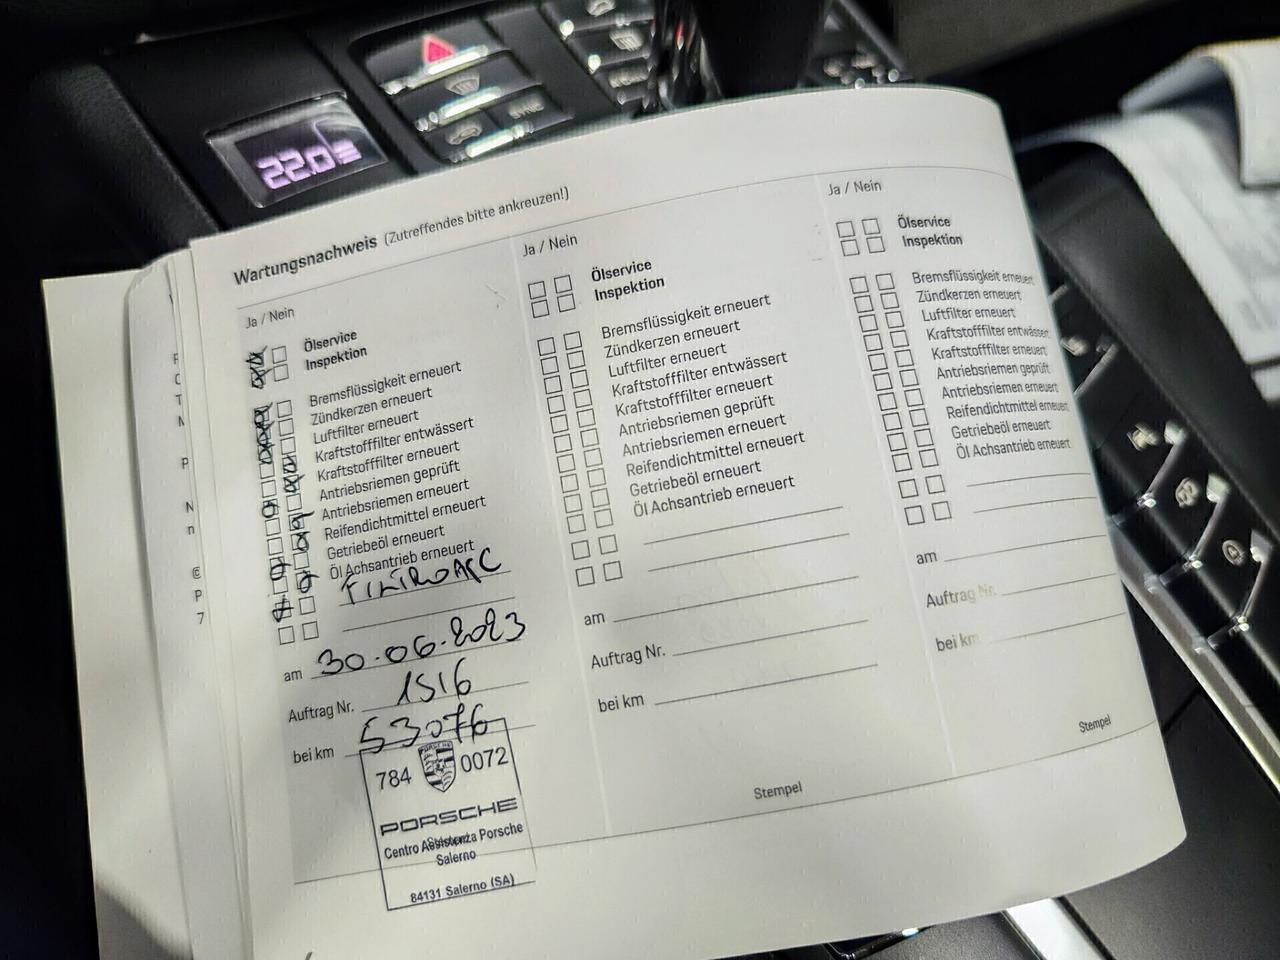 22.0
SYNC
MENU
Wartungsnachweis (Zutreffendes bitte ankreuzen!)
Ja / Nein
Ölservice
Inspektion
Bremsflüssigkeit erneuert
Zündkerzen erneuert
Luftfilter erneuert
Kraftstofffilter entwässert
Kraftstofffilter erneuert
Antriebsriemen geprüft
Antriebsriemen erneuert
Reifendichtmittel erneuert
Getriebeöl erneuert
Öl Achsantrieb erneuert
FILTRO A/C
am 30.06.2023
Auftrag Nr. 1516
bei km 53076
784 0072
PORSCHE
Centro Assistenza Porsche
Salerno
84131 Salerno (SA)
Stempel
Ja / Nein
Ölservice
Inspektion
Bremsflüssigkeit erneuert
Zündkerzen erneuert
Luftfilter erneuert
Kraftstofffilter entwässert
Kraftstofffilter erneuert
Antriebsriemen geprüft
Antriebsriemen erneuert
Reifendichtmittel erneuert
Getriebeöl erneuert
Öl Achsantrieb erneuert
am
Auftrag Nr.
bei km
Stempel
Ja / Nein
Ölservice
Inspektion
Bremsflüssigkeit erneuert
Zündkerzen erneuert
Luftfilter erneuert
Kraftstofffilter entwässert
Kraftstofffilter erneuert
Antriebsriemen geprüft
Antriebsriemen erneuert
Reifendichtmittel erneuert
Getriebeöl erneuert
Öl Achsantrieb erneuert
am
Auftrag Nr.
bei km
Stempel